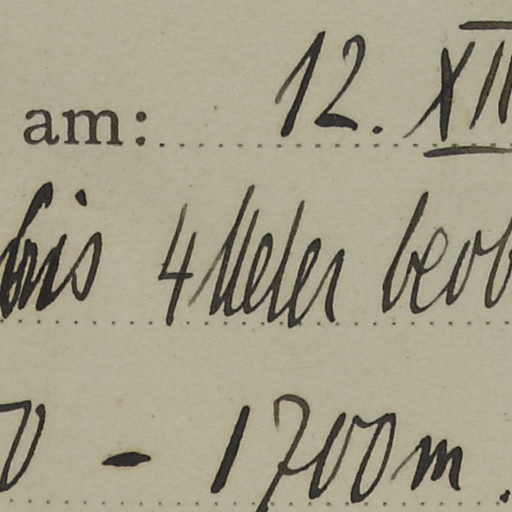 am: 12. XII
bis 4 Meter beob
0 - 1700m.